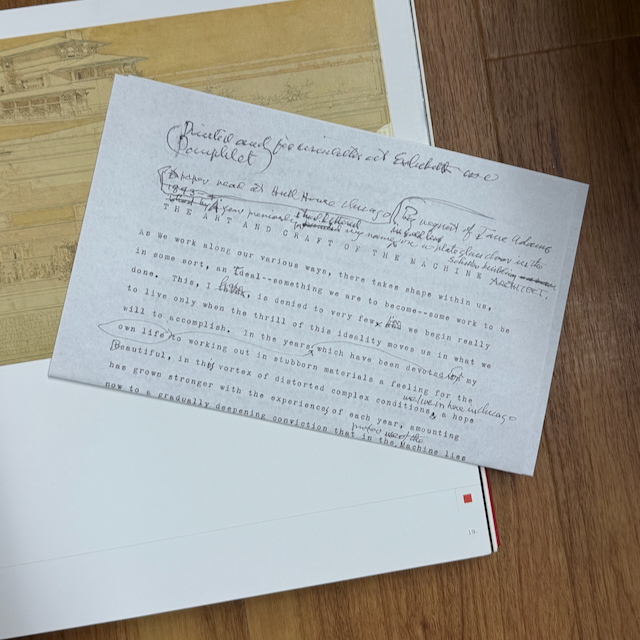 (Printed and
Pamphlet)
A paper read at Hull House Chicago
Request of Jane Addams
1903
a few
my name on a plate glass door in the
ARCHITECT.
THE ART AND CRAFT OF THE MACHINE
As we work along our various ways, there takes shape within us,
in some sort, an Ideal--something we are to become--some work to be
done. This, I, is denied to very few, we begin really
to live only when the thrill of this ideality moves us in what we
will to accomplish. In the years which have been devoted in my
own life to working out in stubborn materials a feeling for the
Beautiful, in the vortex of distorted complex conditions, a hope
we live in here in Chicago
has grown stronger with the experience of each year, amounting
now to a gradually deepening conviction that in the Machine lies
19.